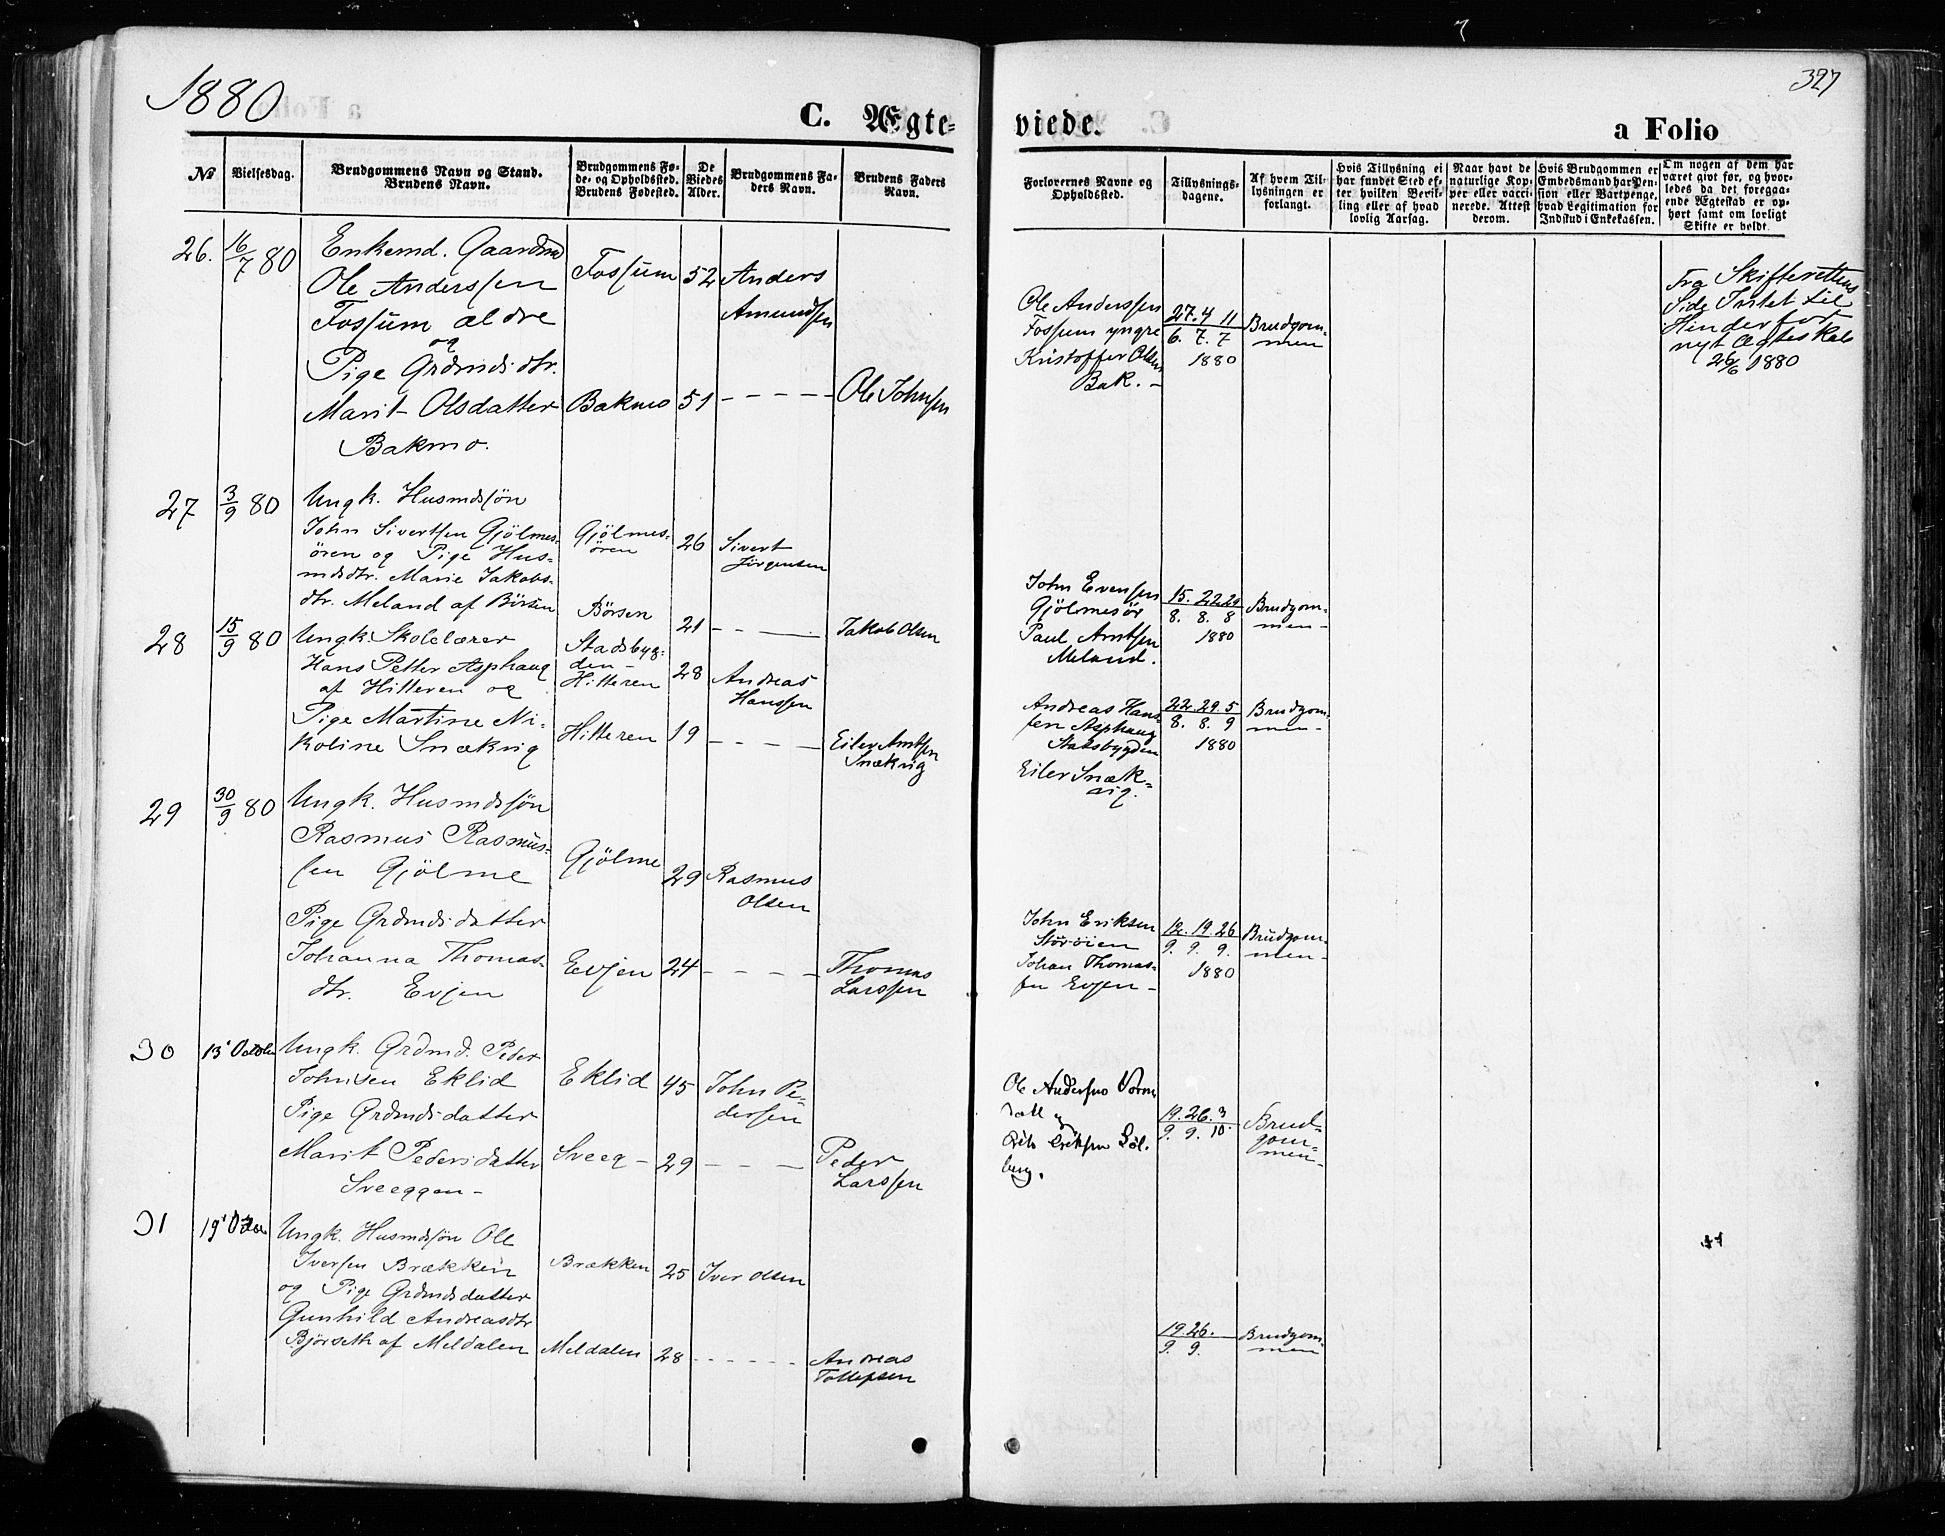 1880
C. Ægte-
No
Vielsesdag.
Brudgommens Navn og Stand.
Brudens Navn.
Brudgommens Fø-
de- og Opholdssted.
Brudens Fødested.
De
Viedes
Alder.
Brudgommens Fa-
ders Navn.
Brudens Faders
Navn.
26. 16/7 80
Enkemd. Gaardmd
Ole Anderssen
Fossum ældre
og
Pige Grdmds.dtr.
Marit Olsdatter
Bakmo.
Fossum 52 Anders
Amundsen
Bakmo 51 - - - - - Ole Johnsen
27 3/9 80
Ungk. Husmdssøn
John Sivertsen Gjölmes-
ören og Pige Hus-
mdsdtr. Marie Jakobs-
dtr. Meland af Börsen
Gjölmes-
ören
26 Sivert
Jörgensen
Börsen 21 - - - Jakob Olsen
28 15/9 80
Ungk. Skolelærer
Hans Petter Asphaug
af Hitteren og
Pige Martine Ni-
koline Snækvig
Stadsbyg-
den -
Hitteren
28 Andreas
Hanssen
Hitteren 19 - - - - Eiler Arntsen
Snækvig
29 30/9 80
Ungk. Husmdssøn
Rasmus Rasmus-
sen Gjölme
Pige Grdmds.datter
Johanna Thomas-
dtr. Evjen
Gjölme 29 Rasmus
Olsen
Evjen 24 - - - - Thomas
Larssen
30 13' October
Ungk. Grdmd. Peder
Johnsen Eklid
Pige Grdmdsdatter
Marit Pedersdatter
Sveeggen -
Eklid 45 John Pe-
dersen
Sveeg - 29 - - - Peder
Larssen
31 19'
Ungk. Husmdssøn Ole
Iversen Brækken
og Pige Grdmdsdatter
Gunhild Andreasdtr
Bjørseth af Meldalen
Brækken 25 Iver Olsen
Meldalen 28 - - - - - - Andreas
Tollefsen
327
viede.
a Folio
Forlorernes Navne og
Opholdssted.
Tillysnings-
dagene.
Af hvem Til-
lysningen er
forlangt.
Hvis Tillysning ei
har fundet Sted ef-
ter hvilken Bevil-
ling eller af hvad
lovlig Aarsag.
Naar havt de
naturlige Kop-
per eller vacci-
nerede. Attest
derom.
Hvis Brudgommen er
Embedsmand har Pen-
sion eller Vartpenge,
hvad Legitimation for
Indskud i Enkekassen.
Om nogen af dem har
været givt før, og hvor-
ledes da det foregaa-
ende Ægteskab er op-
hørt samt om lovligt
Skifte er holdt.
Ole Anderssen
Fossum yngre
Kristoffer Olsen
Bak. -
27. 4 11
6. 7. 7
1880
Brudgom-
men
Fra Skifterettens
Side Intet til
Hinder for
nyt Ægteskab
26/6 1880
John Evensen
Gjölmesör
Paul Arntsen
Meland.
15. 22. 29
8. 8. 8
1880
Brudgom-
men -
Andreas Hans-
sen Asphaug
Stadsbygden
Eiler Snæk-
vig.
22. 29. 5
8. 8. 9
1880
Brudgom-
men -
John Eriksen
Störöien
Johan Thomas-
sen Evjen -
12. 19. 26
9. 9. 9.
1880
Brudgom-
men -
Ole Andersen
og
Eriksen Sol-
berg.
19. 26. 3
9. 9. 10.
Brud-
gom-
men -
19. 26.
9. 9.
Brudgom-
men